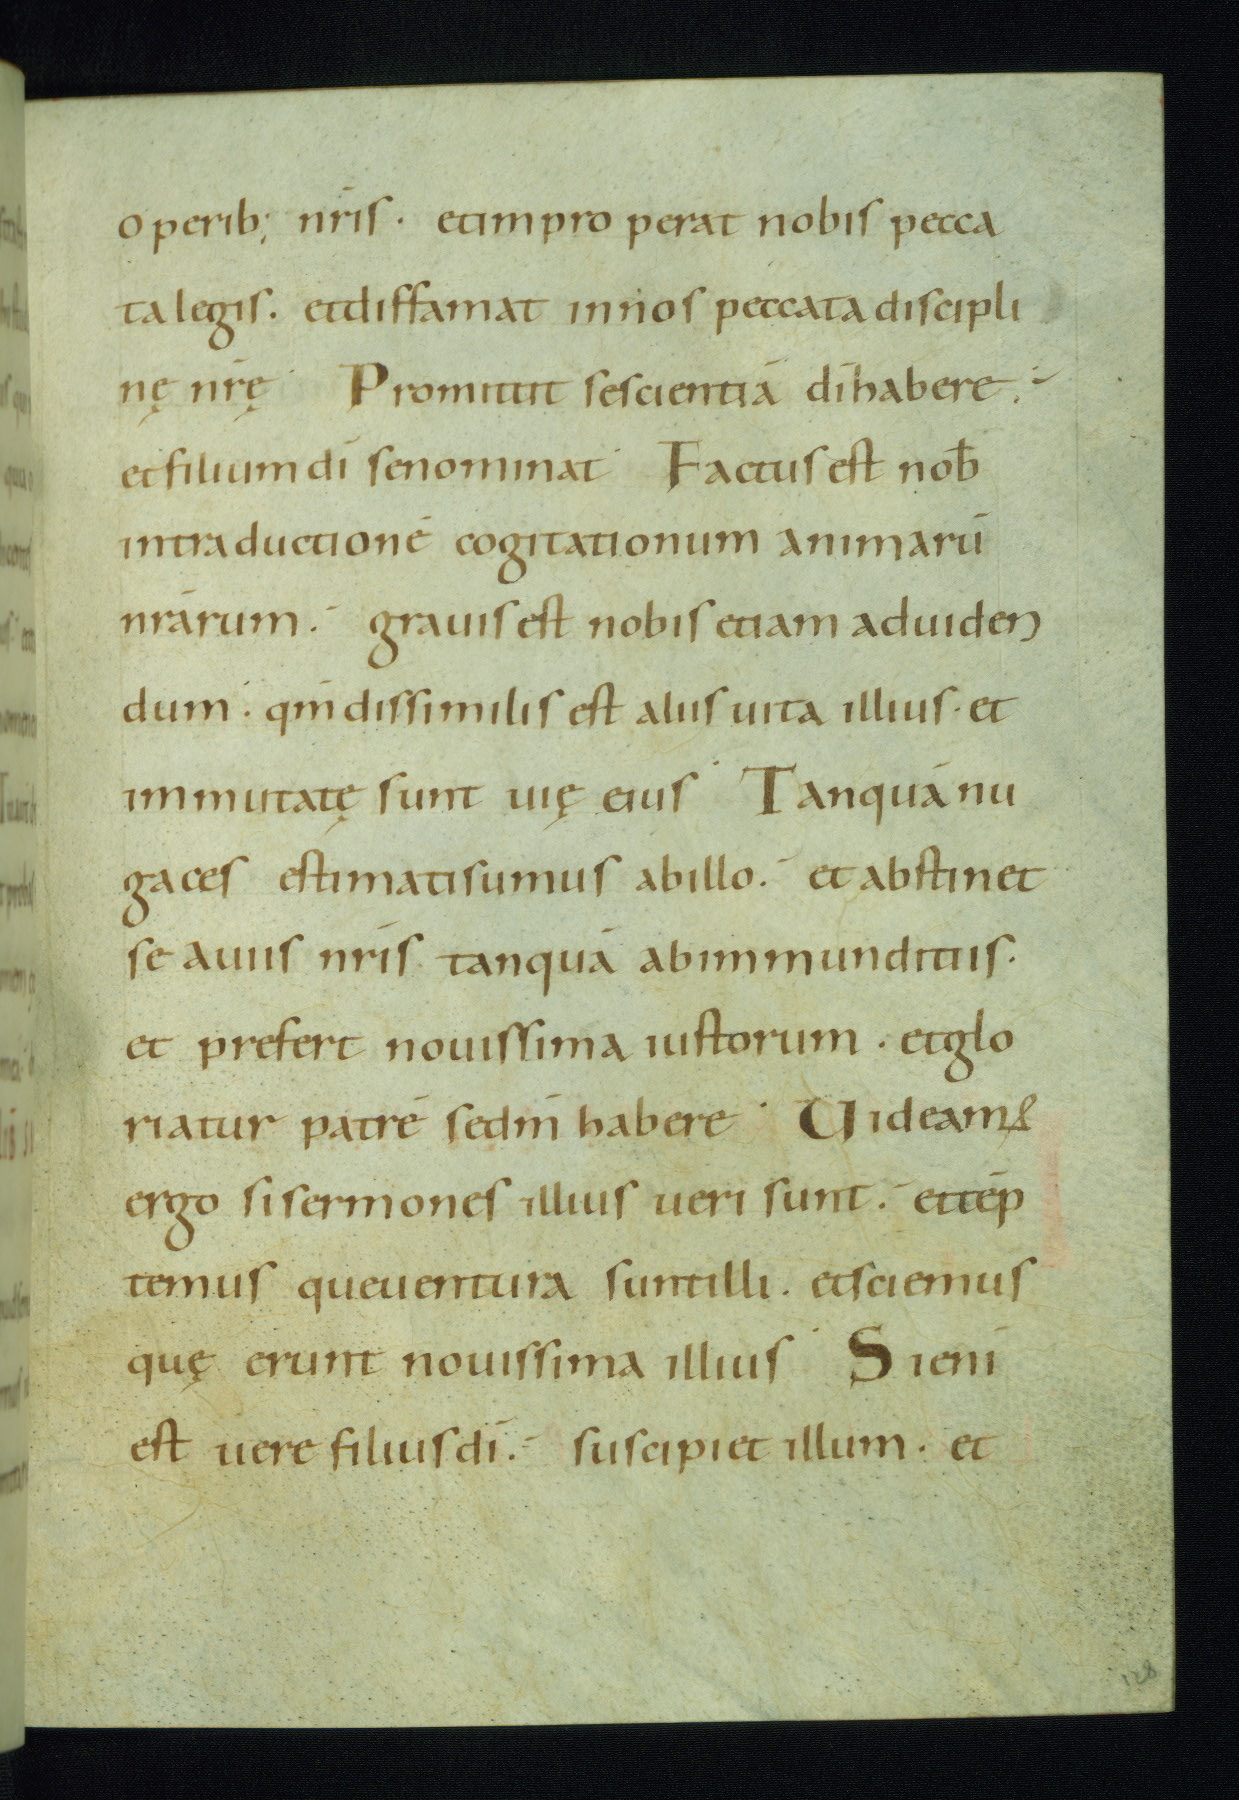 operib; nr̄is. et impro perat nobis pecca
ta legis. et diffamat in nos peccata discipli
nę nr̄ę. Promittit se scientiā dī habere.
et filium dī se nominat. Factus est nob̄
in traductionē cogitationum animarū
nr̄arum. grauis est nobis etiam ad uiden
dum. qm̄ dissimilis est aliis uita illius. et
immutatę sunt uię eius. Tanquā nu
gaces estimati sumus ab illo. et abstinet
se a uiis nr̄is tanquā ab immunditiis.
et prefert nouissima iustorum. et glo
riatur patrē se dm̄ habere. Uideamꝰ
ergo si sermones illius ueri sunt. et tēp
temus que uentura sunt illi. et sciemus
quę erunt nouissima illius. Si eni
est uere filius dī. suscipiet illum. et
128